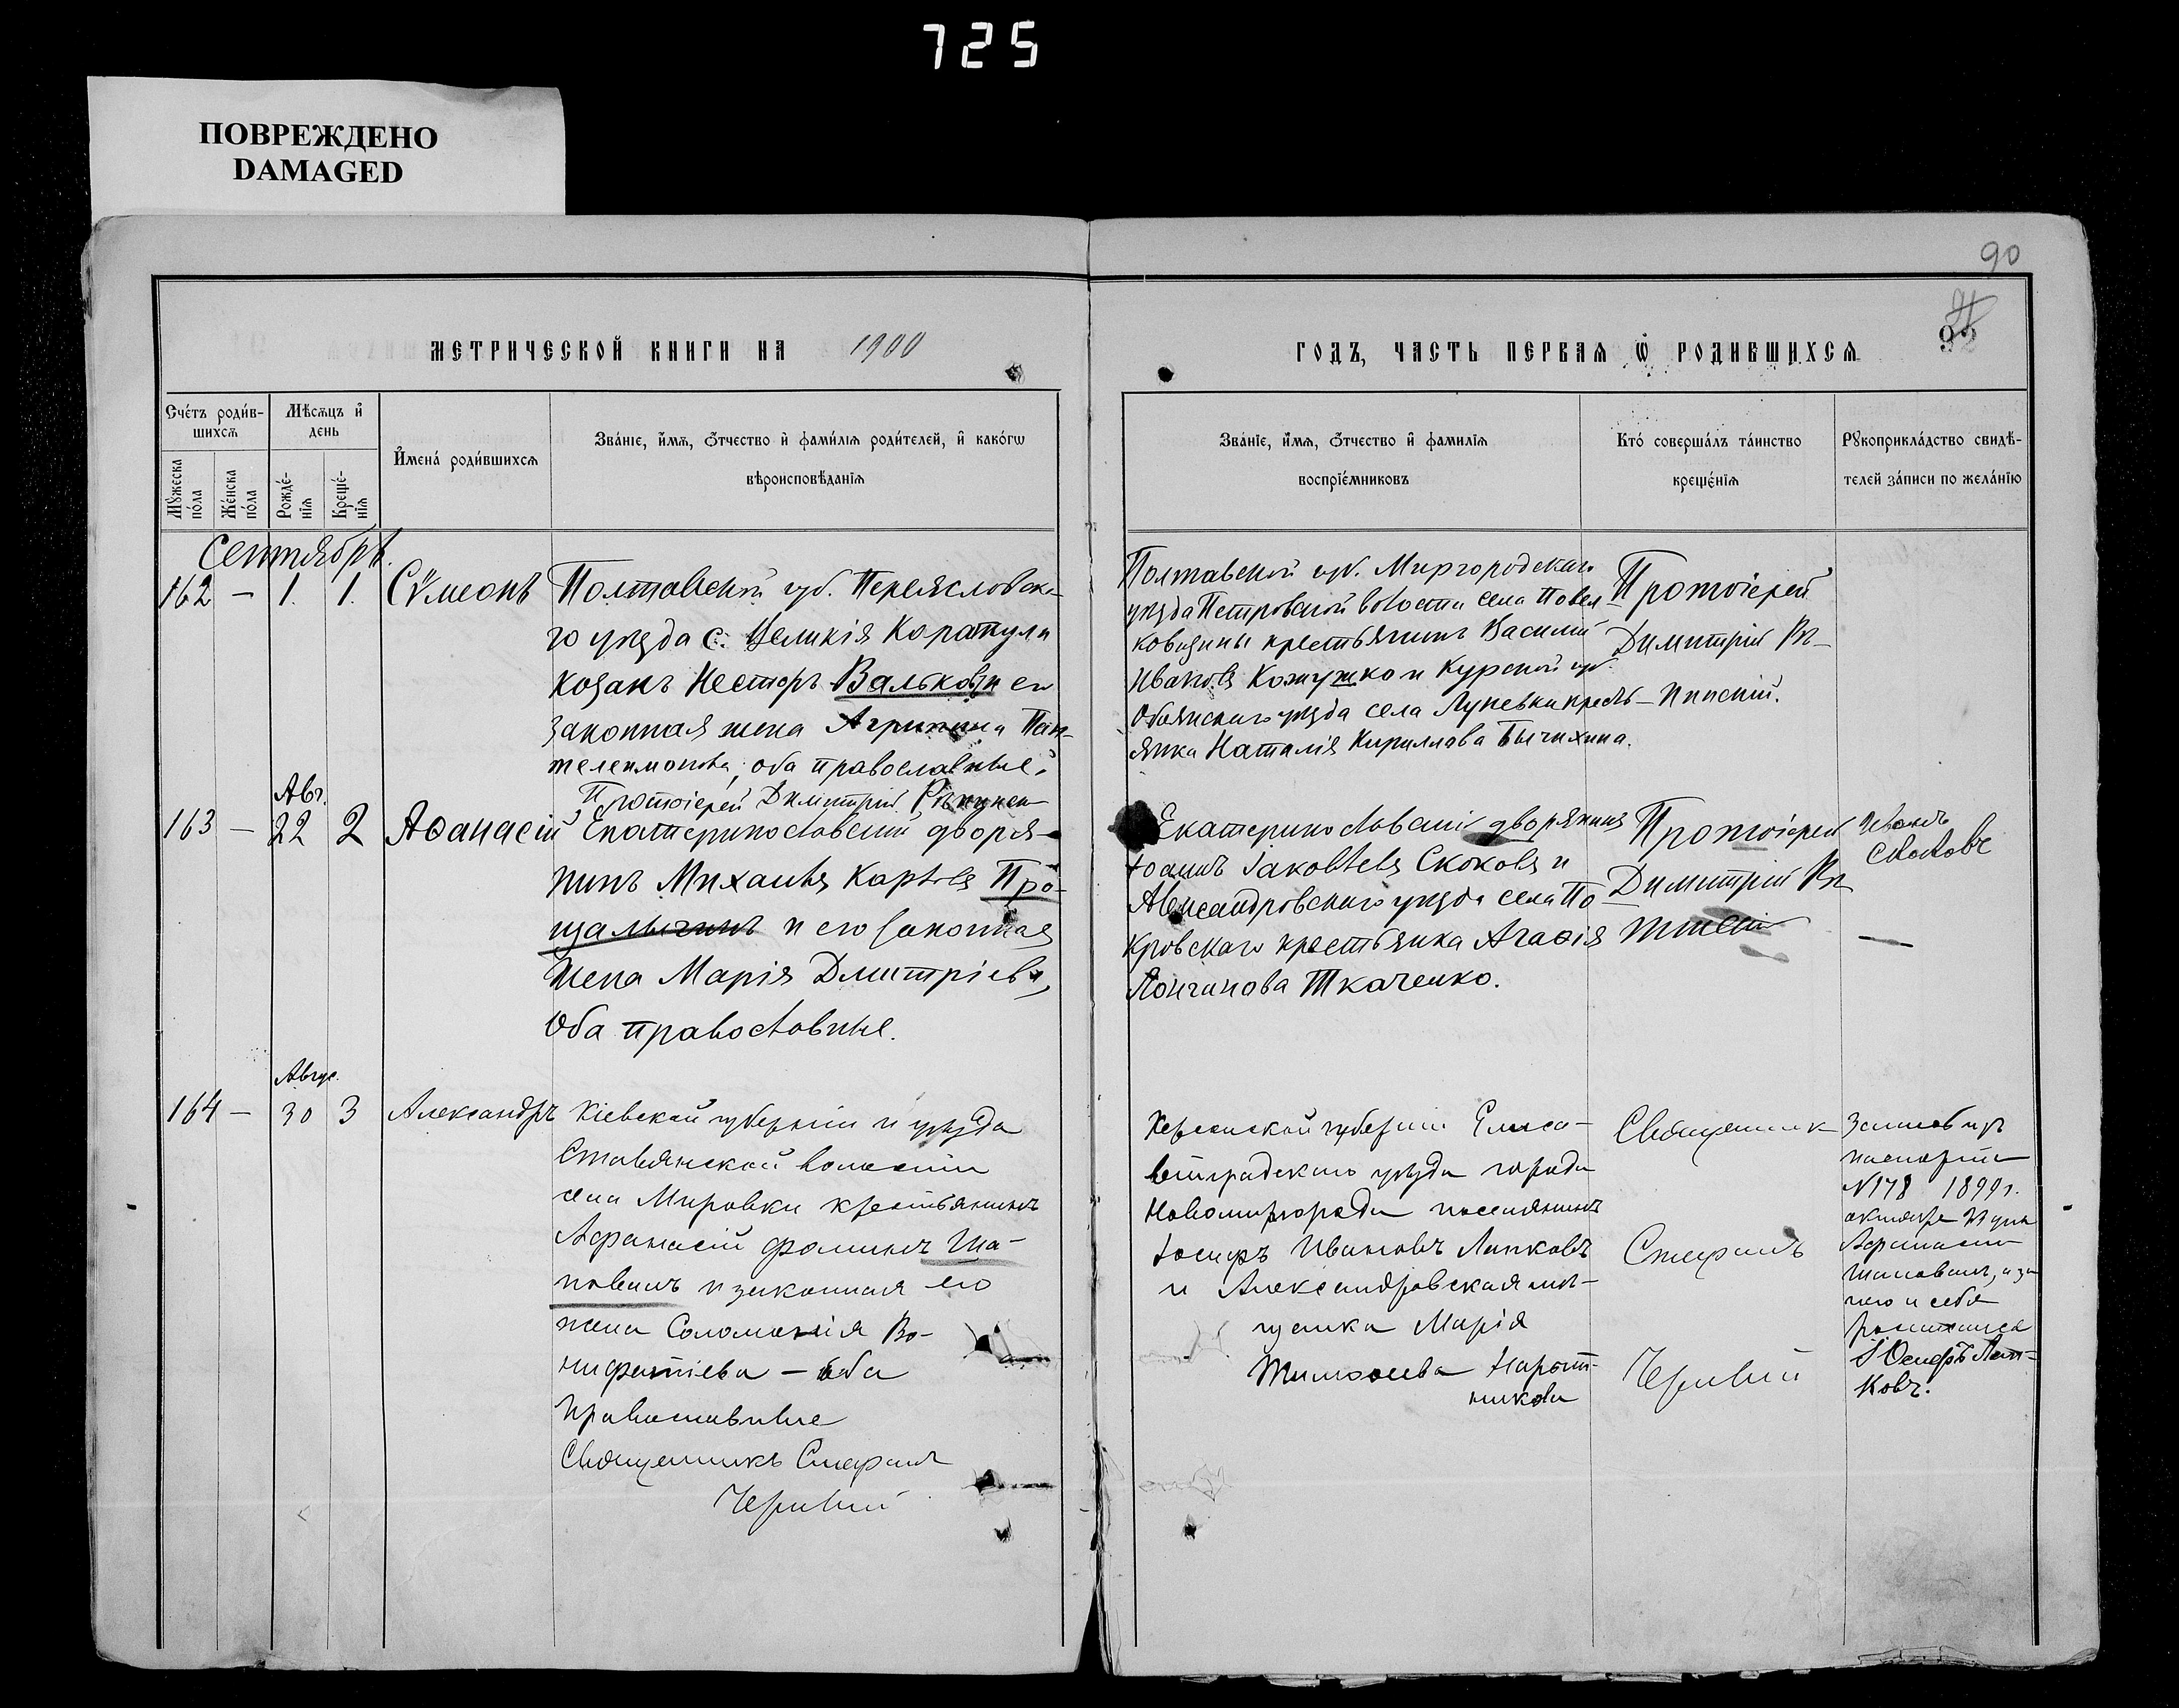 725
ПОВРЕЖДЕНО
DAMAGED
90
92
МЕТРИЧЕСКОЙ КНИГИ НА 1900
ГОДЪ, ЧАСТЬ ПЕРВАЯ Ѿ РОДИВШИХСЯ
Счетъ родив-
шихся
Мужеска
пола
Женска
пола
Мѣсяцъ и
день
Рожде-
нія
Креще-
нія
Имена родившихся
Званіе, имя, отчество и фамилія родителей, и какогѡ
вѣроисповѣданія
Званіе, имя, отчество и фамилія
воспріемниковъ
Кто совершалъ таинство
крещенія
Рукоприкладство свидѣ-
телей записи по желанію
Сентябрь.
162 — 1. 1. Сѵмеонъ
Полтавской губ. Переясловска-
го уѣзда с. Великія Коратули
козакъ Несторъ Вальковъ и его
законная жена Агрипина Пан-
телеимонова, оба православные.
Протоіерей Димитрій
Полтавской губ. Миргородскаго
уѣзда Петровской волости села
крестьянинъ Василій
Ивановъ Кожушко и Курской губ.
Обоянскаго уѣзда села кресть-
янка Наталія Кириллова Бычихина.
Протоіерей
Димитрій
163 — Авг. 22 2 Аѳанасій
Екатеринославскій дворя-
нинъ Михаилъ Карповъ Про-
щалыгинъ и его законная
жена Марія Дмитріева,
Оба православные.
Екатеринославскій дворянинъ
Іоаннъ Іаковлевъ Скоковъ и
Александровскаго уѣзда села По-
кровскаго крестьянка Агаѳія
Лонгинова Ткаченко.
Протоіерей
Димитрій
Иванъ
Скоковъ
164 — Авгус. 30 3 Александръ
Кіевской губерніи и уѣзда
Ставянской волости
села Мировки крестьянинъ
Афанасій Фоминъ Ша-
повалъ и законная его
жена Соломонія Во-
нифатіева — оба
Православные
Священникъ Стефанъ
Херсонской губерніи Елиса-
ветградскаго уѣзда города
Новомиргорода поселянинъ
Іосифъ Ивановъ Лапковъ
и Александровская мѣ-
щанка Марія
Тимоѳеева
никова
Священникъ
Стефанъ
паспорта
N178 1899 г.
октября 27 дня
Афанасій
Шаповалъ, а за
него и себя
росписался
Осифъ Лап-
ковъ.